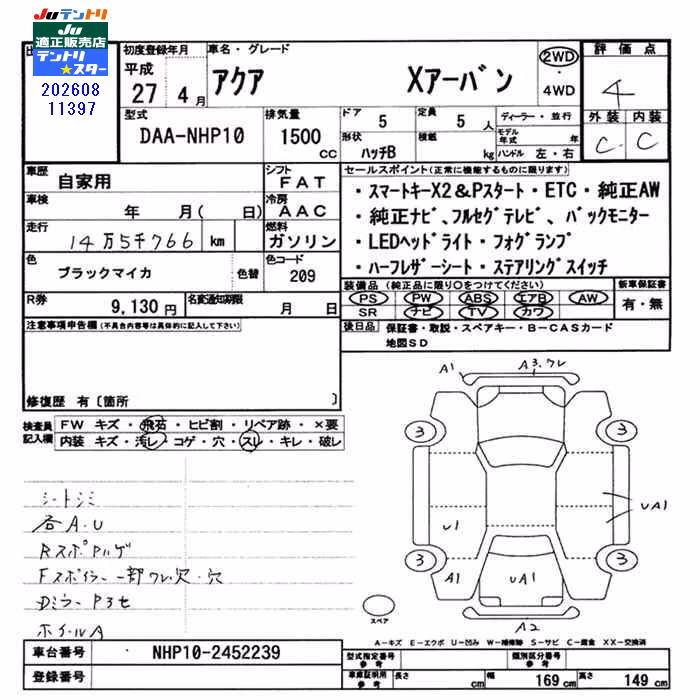 Juテントリ
Ju
適正販売店
テントリ
★スター
202608
11397
初度登録年月
平成
27 4月
車名・グレード
アクア Xアーバン
2WD
・
4WD
評価点
4
外装 内装
C C
型式
DAA-NHP10
排気量
1500
CC
ドア
5
定員
5人
形状
ハッチB
積載
kg
ディーラー・並行
モデル年式 年
ハンドル 左・右
車歴
自家用
シフト
FAT
車検
年 月( 日)
冷房
AAC
走行
14万5千766 km
燃料
ガソリン
色
ブラックマイカ
色替
色コード
209
R券
9,130円
名変通知期限
月 日
セールスポイント(正常に機能するものに限ります)
・スマートキーX2&Pスタート・ETC・純正AW
・純正ナビ、フルセグテレビ、バックモニター
・LEDヘッドライト・フォグランプ
・ハーフレザーシート・ステアリングスイッチ
装備品(純正品に限り○をつけてください)
PS PW ABS エアB AW
SR ナビ TV カワ
新車保証書
有・無
後日品
保証書・取説・スペアキー・B-CASカード
地図SD
注意事項申告欄(不具合内容等は具体的に記入して下さい)
修復歴 有〔箇所 〕
検査員
記入欄
FW キズ・飛石・ヒビ割・リペア跡・×要
内装 キズ・汚レ・コゲ・穴・スレ・キレ・破レ
シートシミ
各A.U
RスポPハゲ
Fスポイラー一部ワレ欠・穴
Dミラー P3セ
ホイールA
A1
A3.ワレ
3
3
U1
UA1
3
3
A1
UA1
A2
スペア
A-キズ E-エクボ U-凹み W-補修跡 S-サビ C-腐食 XX-交換済
車台番号
NHP10-2452239
登録番号
型式指定番号
参考
類別区分番号
参考
車庫証明用
参考
長さ
cm
幅
169 cm
高さ
149 cm